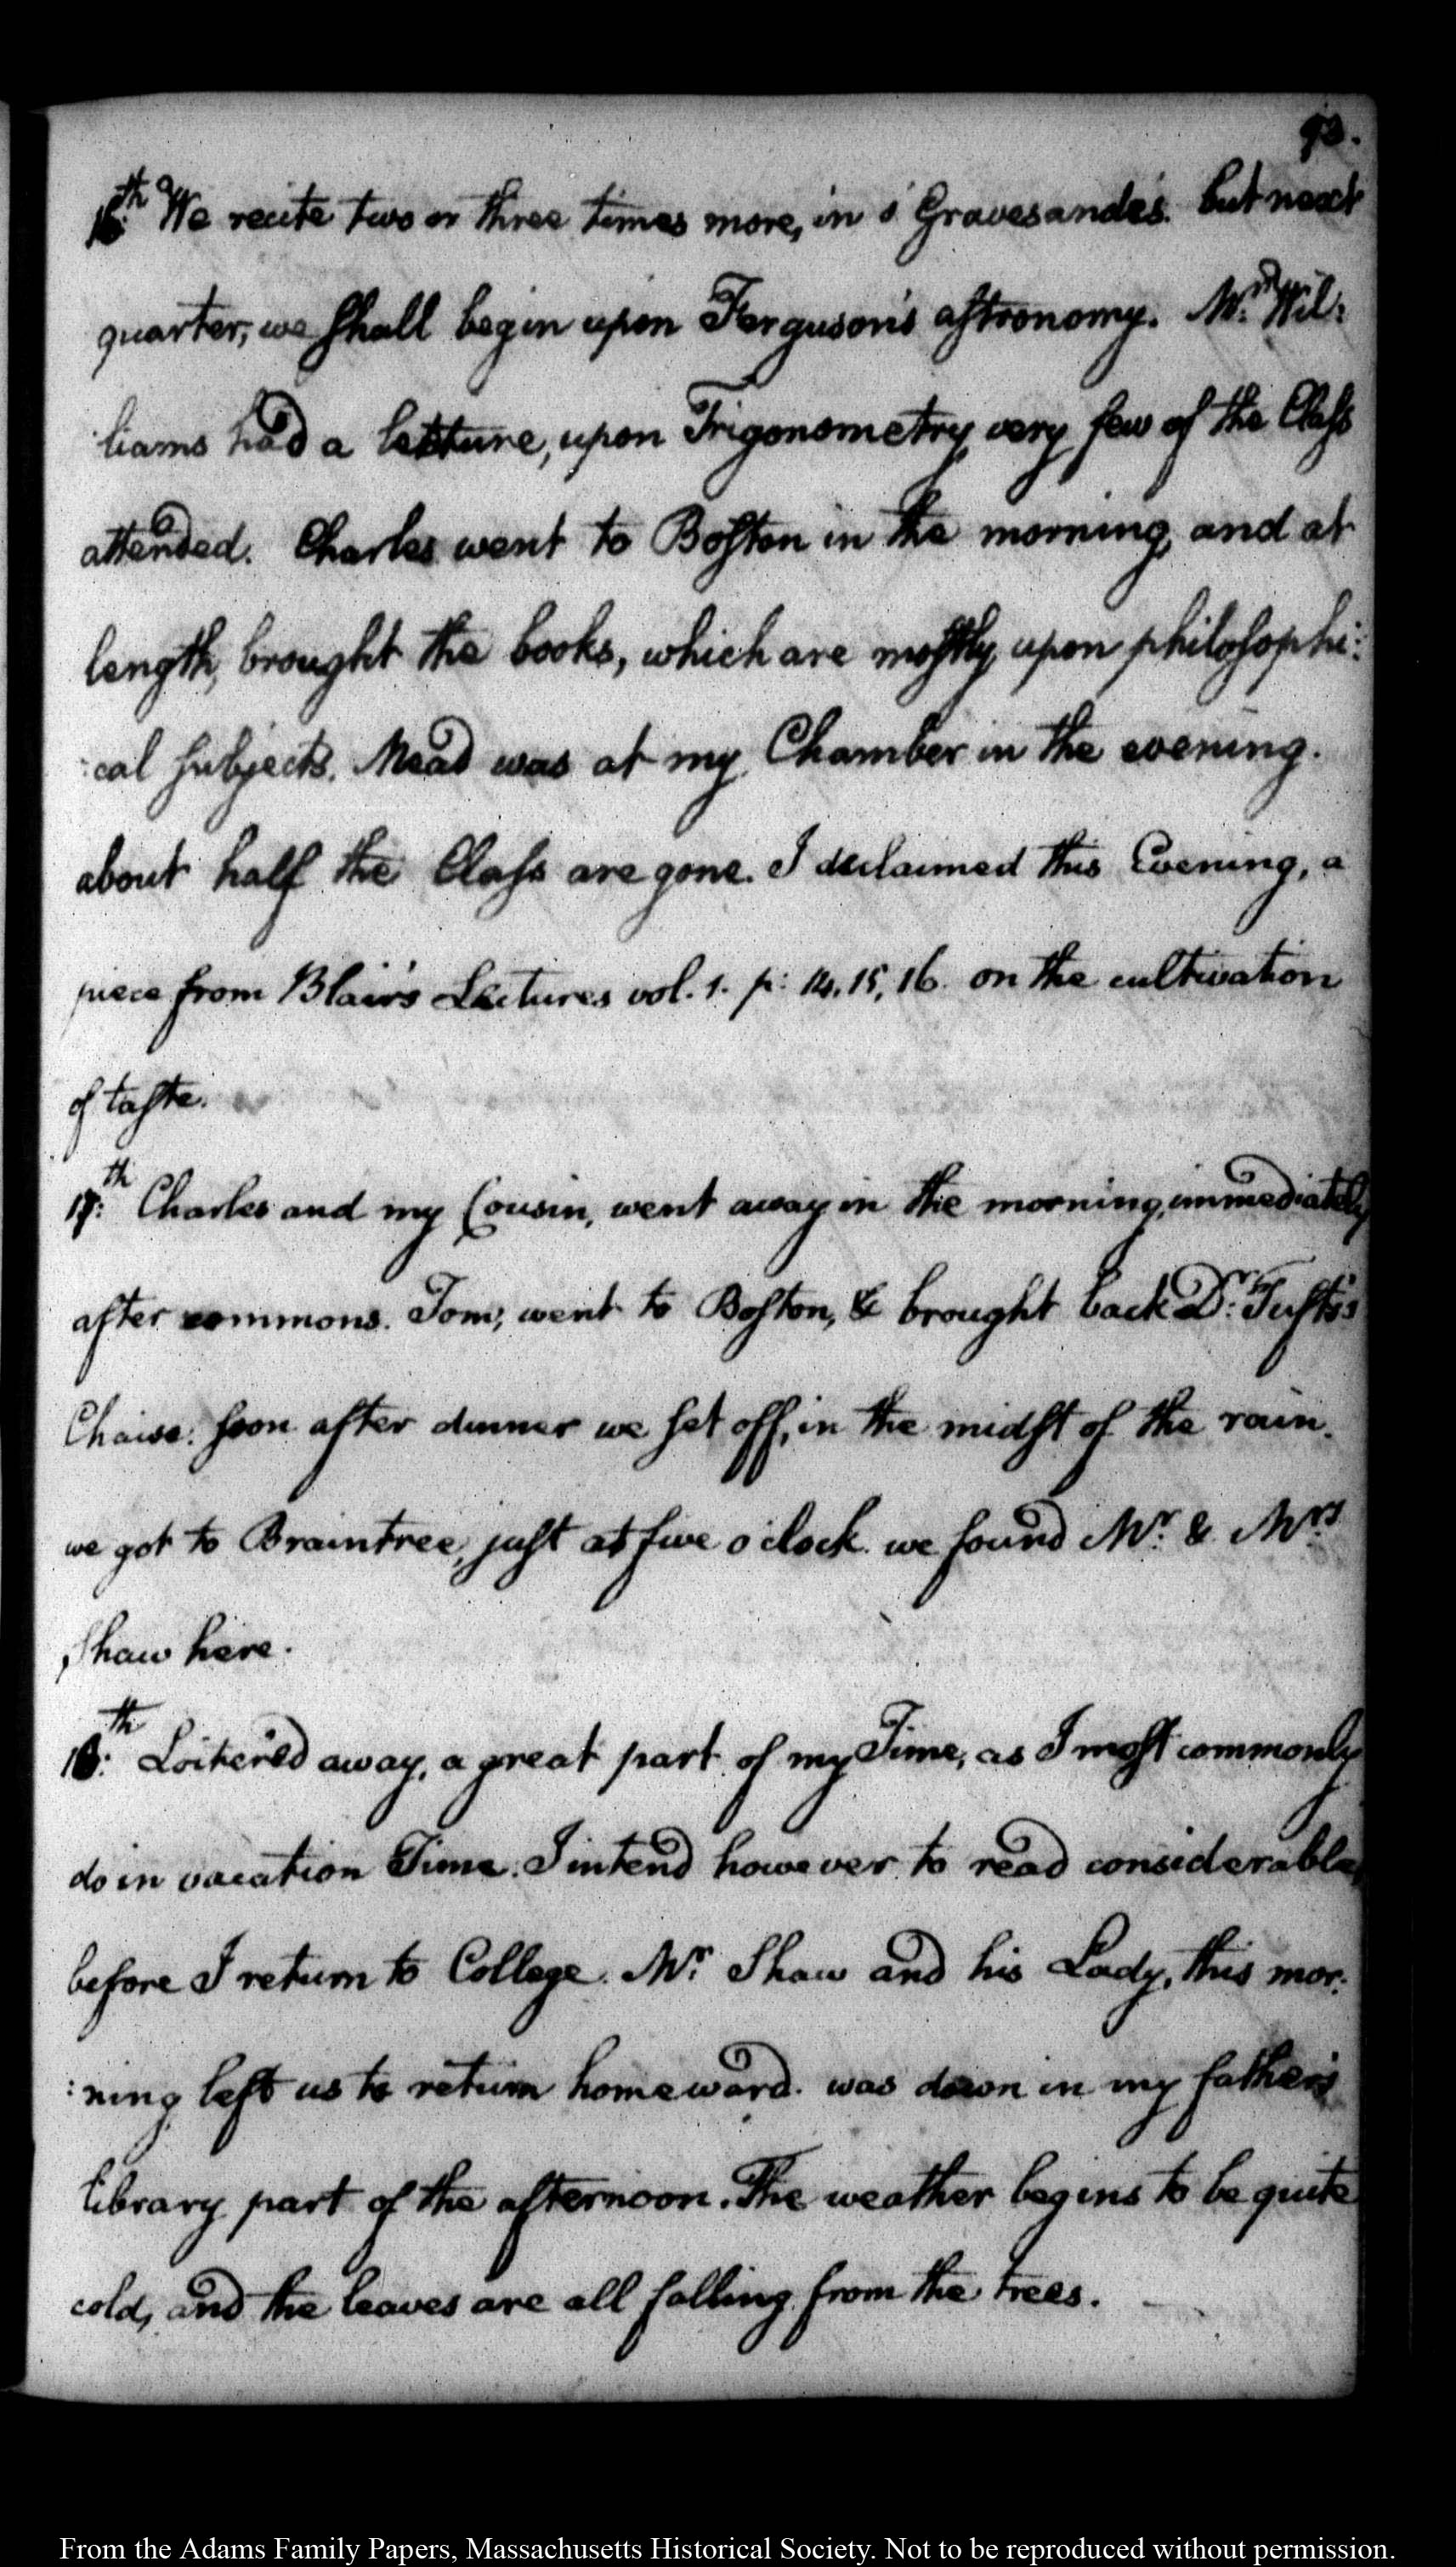 93.
16.th We recite two or three times more, in s'Gravesande's. but next
quarter, we shall begin upon Ferguson's astronomy. Mr. Wil:
liams had a lecture, upon Trigonometry, very few of the Class
attended. Charles went to Boston in the morning, and at
length, brought the books, which are mostly, upon philosophi:
:cal subjects. Mead was at my Chamber in the evening.
about half the Class are gone. I declaimed this Evening, a
piece from Blair's Lectures vol. 1. p: 14, 15, 16. on the cultivation
of taste.
17:th Charles and my Cousin, went away in the morning, immediately
after commons. Tom, went to Boston, & brought back Dr. Tufts's
Chaise. soon after dinner we set off, in the midst of the rain.
we got to Braintree, just at five o'clock. we found Mr. & Mrs.
Shaw here.
18:th Loiter'd away, a great part of my Time, as I most commonly
do in vacation Time. I intend however to read considerable,
before I return to College. Mr. Shaw and his Lady, this mor:
:ning left us to return homeward. was down in my father's
library part of the afternoon. The weather begins to be quite
cold, and the leaves are all falling from the trees.
From the Adams Family Papers, Massachusetts Historical Society. Not to be reproduced without permission.